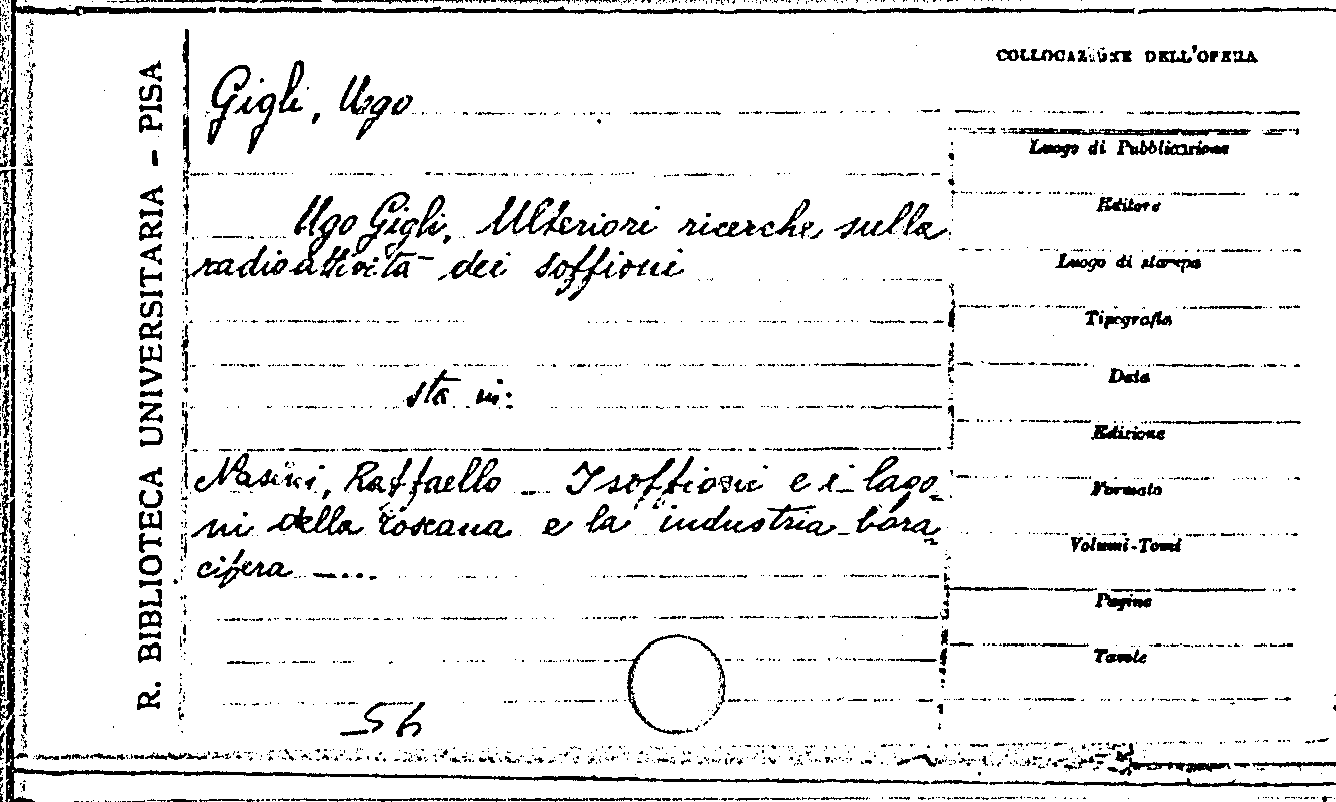 R. BIBLIOTECA UNIVERSITARIA - PISA
Gigli, Ugo
Ugo Gigli, Ulteriori ricerche sulla
radioattività dei soffioni
sta in:
Nasini, Raffaello - I soffioni e i lago-
ni della Toscana e la industria bora-
cifera ....
56
COLLOCAZIONE DELL'OPERA
Luogo di Pubblicazione
Editore
Luogo di stampa
Tipografia
Data
Edizione
Formato
Volumi-Tomi
Pagine
Tavole